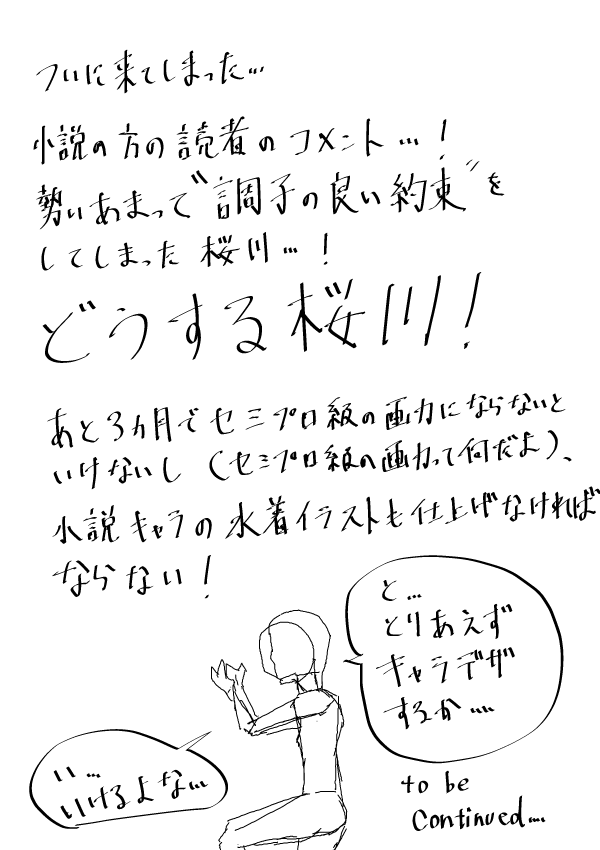 ついに来てしまった…
小説の方の読者のコメント…！
勢いあまって“調子の良い約束”を
してしまった桜川…！
どうする桜川！
あと3ヵ月でセミプロ級の画力にならないと
いけないし（セミプロ級の画力って何だよ）、
小説キャラの水着イラストも仕上げなければ
ならない！
と…
とりあえず
キャラデザ
するか….
い…
いけるよな…
to be
continued....